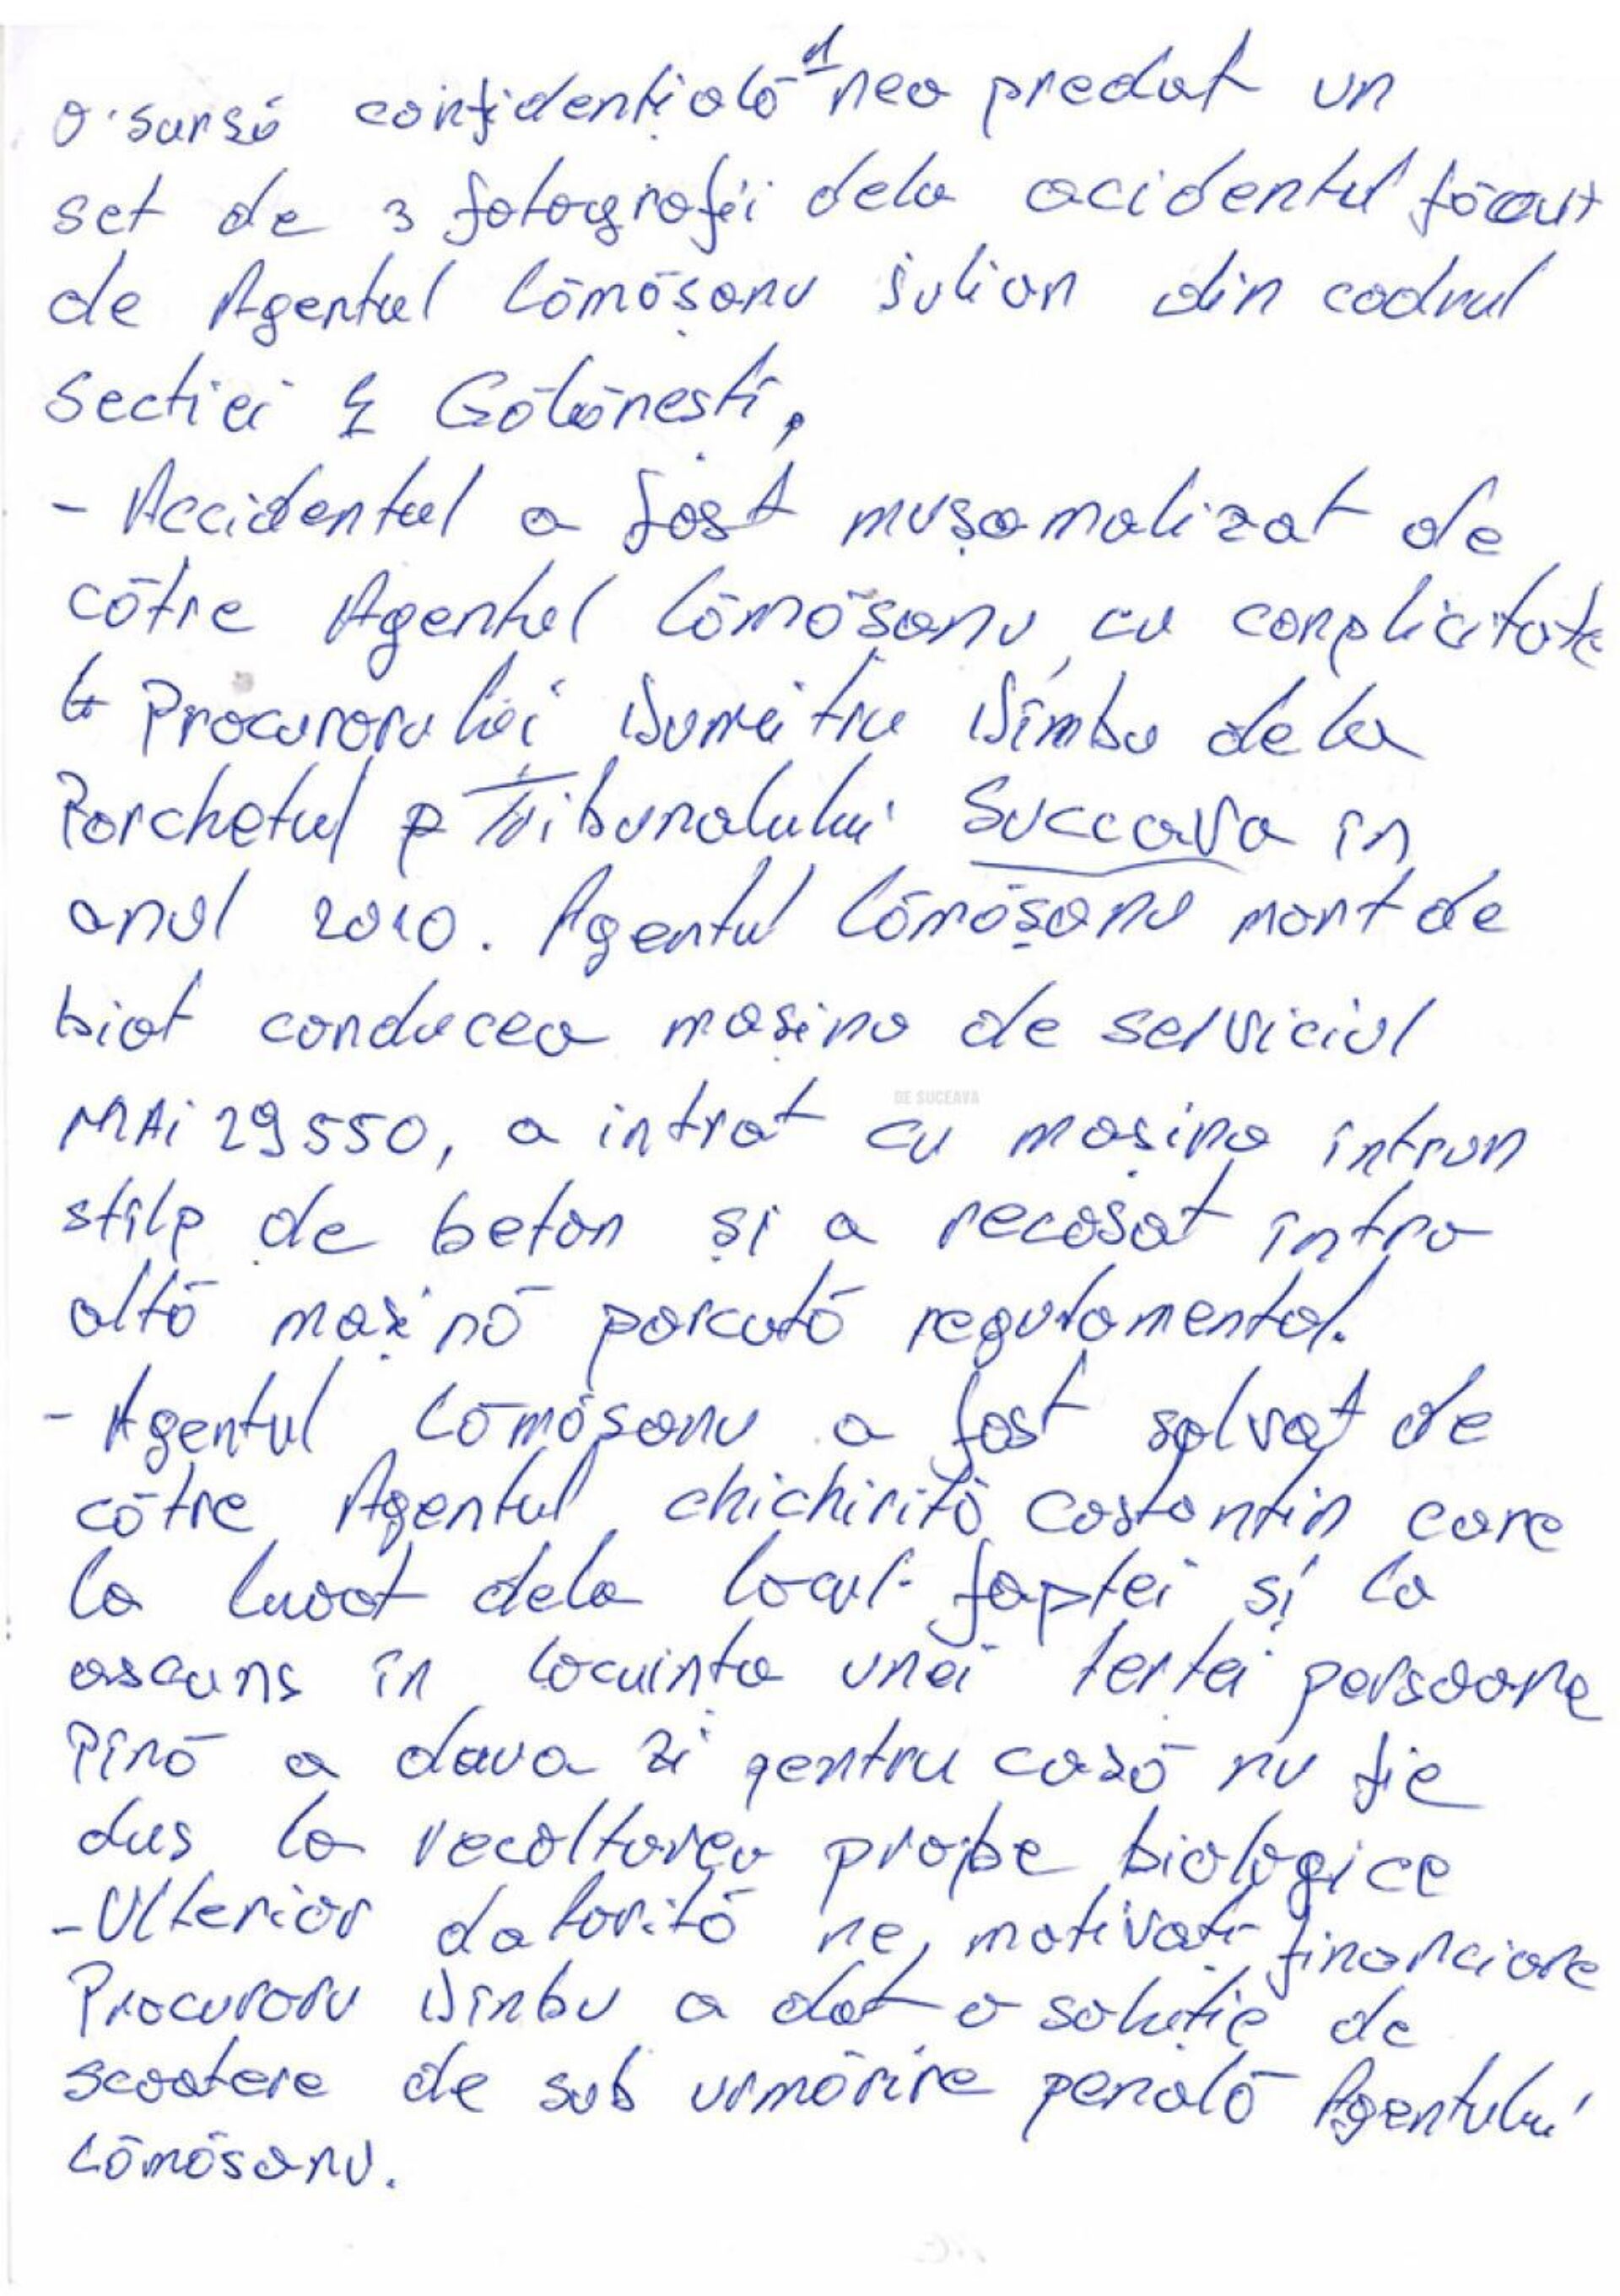 O sursă confidențială nea predat un
set de 3 fotografii dela acidentul făcut
de Agentul Lămășanu iulian din cadrul
Sectiei Gălănești,
- Accidentul a fost mușamalizat de
către Agentul Lămășanu, cu complicitate
Procurorului Dumitru Dîmbu dela
Parchetul Tribunalului Succava în
anul 2010. Agentul Lămășanu mort de
biat conducea masina de serviciul
MAi 29550, a intrat cu mașina întrun
stîlp de beton și a recosat întro
altă mașină parcată regulamentar.
- Agentul Lămășanu a fost salvat de
către Agentul chichiriță Costantin care
la luoat dela locul faptei și la
ascuns în locuința unei terței persoane
Pînă a daua zi pentru casă nu fie
dus la recoltarea probe biologice
- Ulterior datorită ne, motivați financiare
Procuroru Dînbu a dat o soluție de
scoatere de sub urmărire penală Agentului
Lămășanu.
DE SUCEAVA